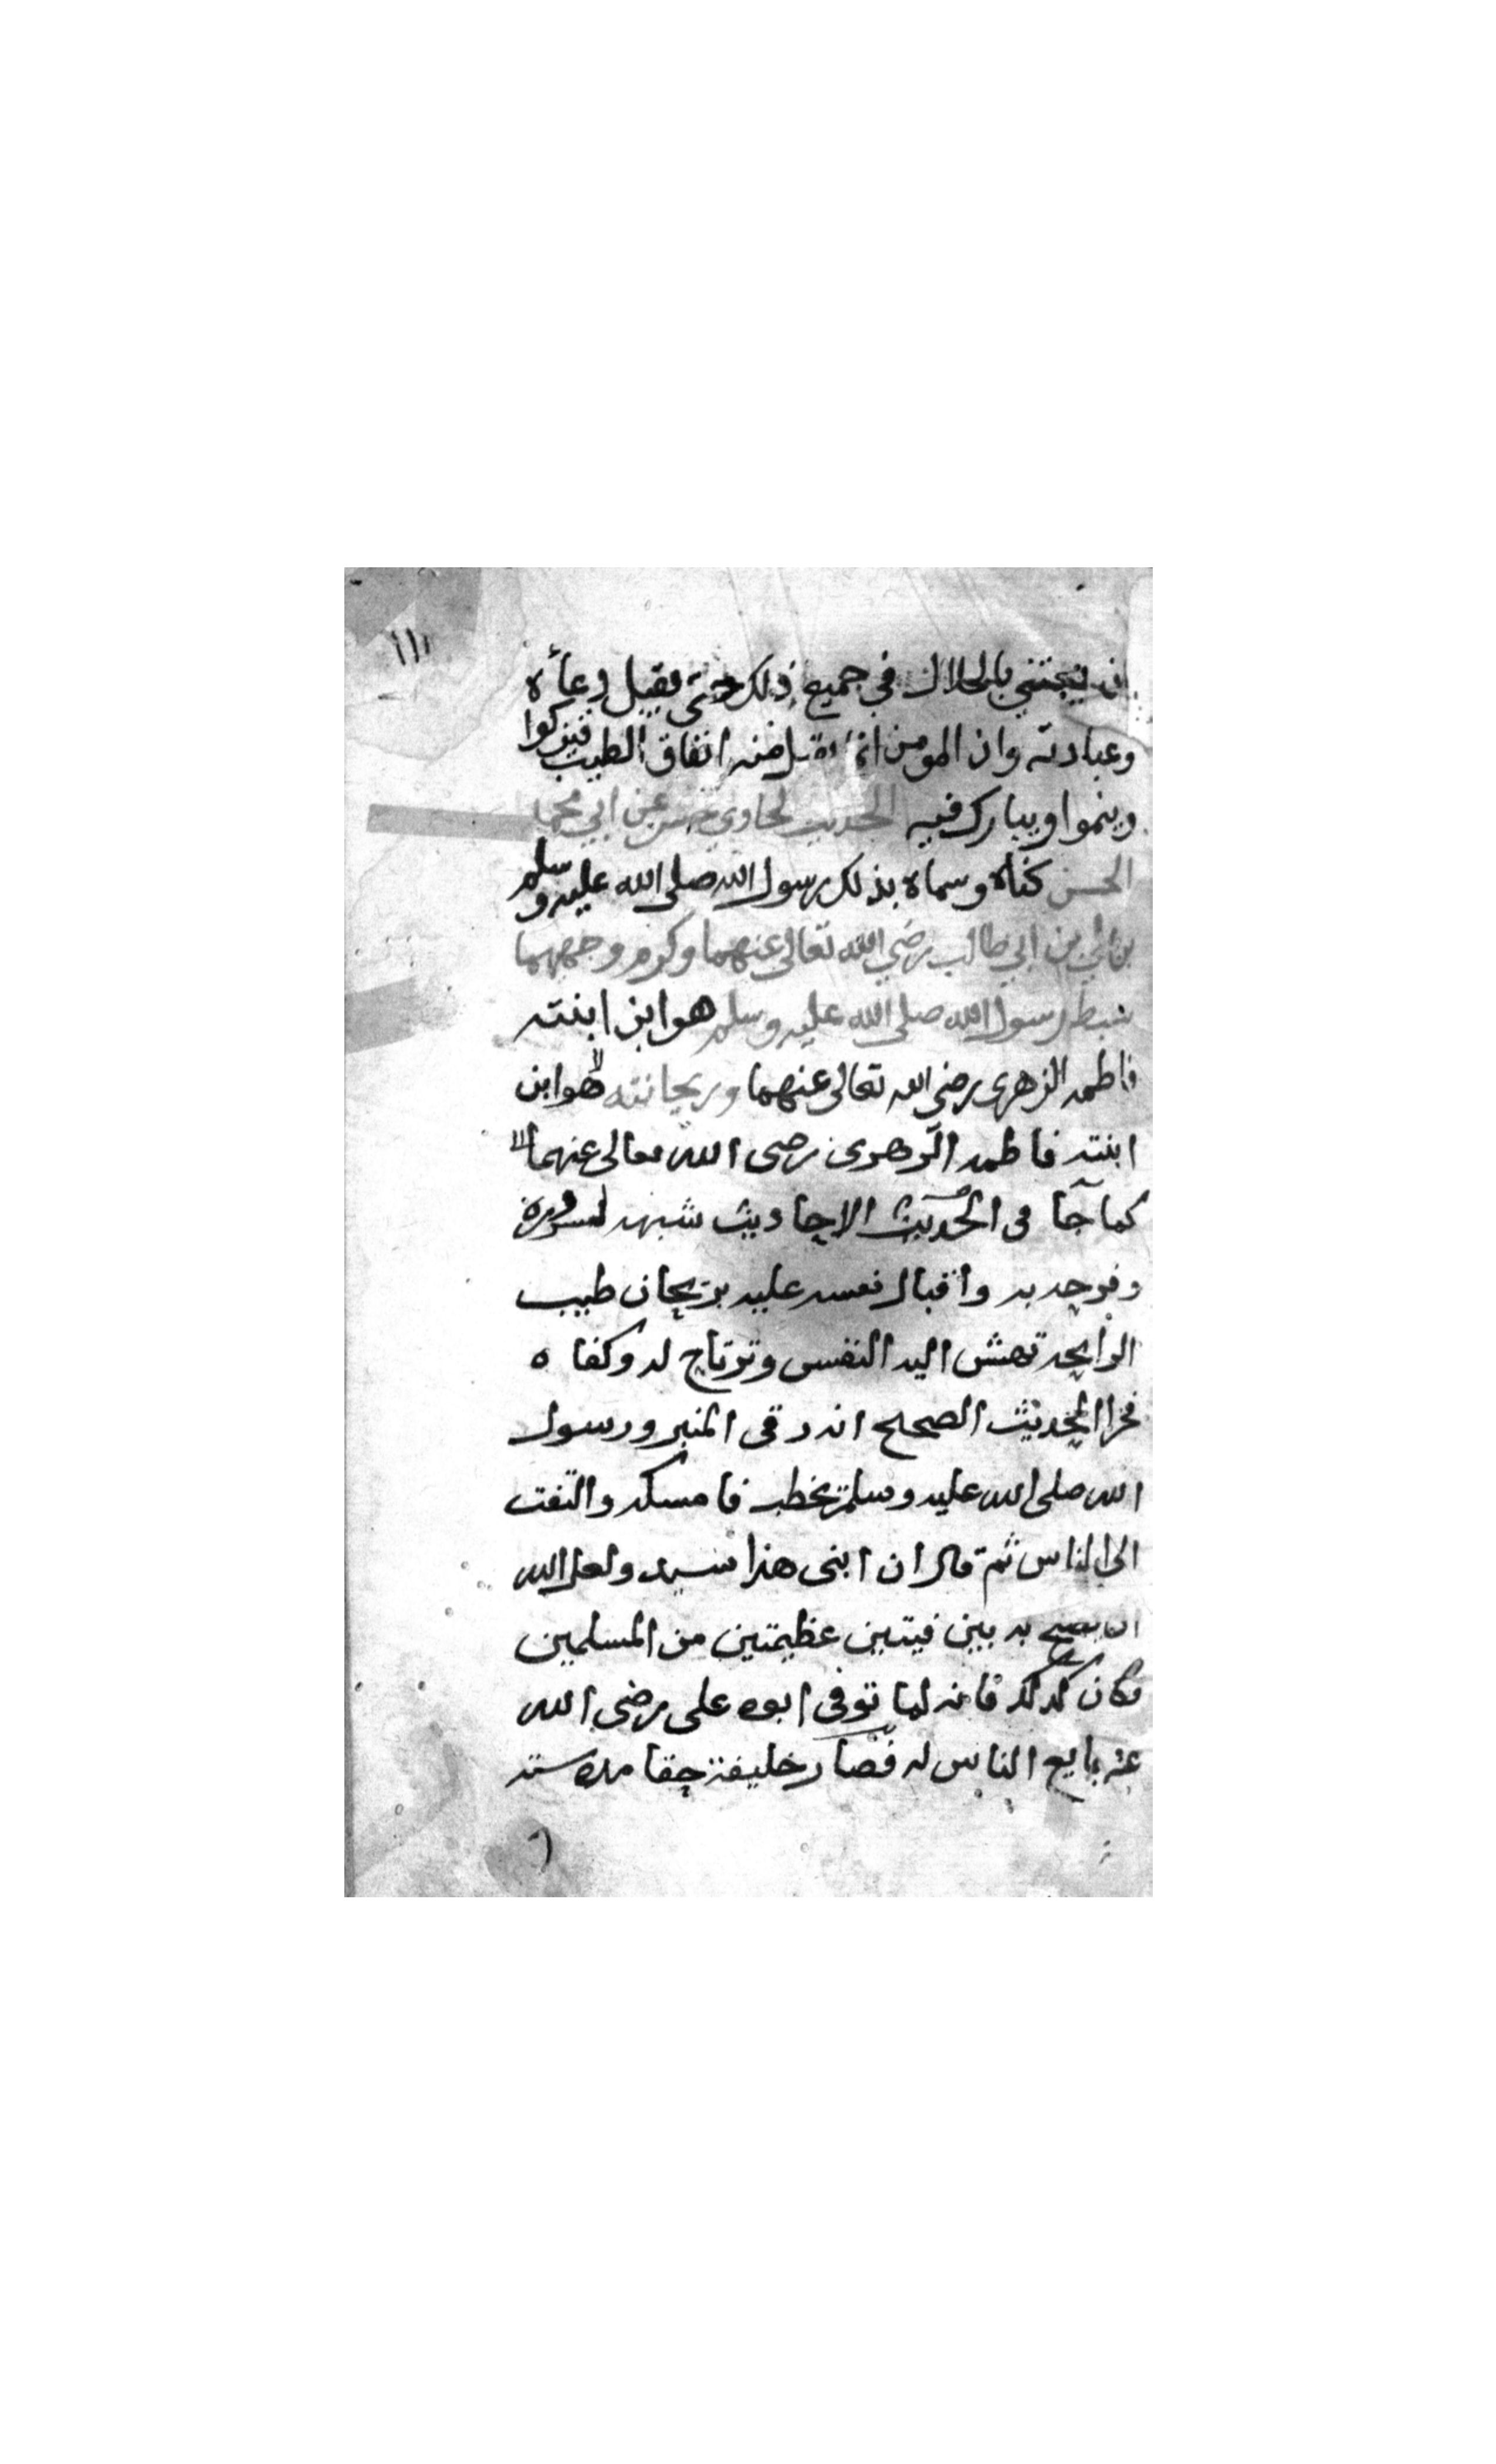 ١١١
ان يعتني بالحلال في جميع ذلك حتى يقبل دعاءه
وعبادته وان المومن انما يقبل منه انفاق الطيب فيزكوا
وينموا ويبارك فيه الحديث الحادي عشر عن ابي محمد
الحسن كناه وسماه بذلك رسول الله صلى الله عليه وسلم
بن علي بن ابي طالب رضي الله تعالى عنهما وكرم وجههما
سبط رسول الله صلى الله عليه وسلم هو ابن ابنته
فاطمه الزهرى رضي الله تعالى عنهما وريحانته هو ابن
ابنته فاطمه الزهرى رضى الله تعالى عنهما
كما جآ فى الحديث الاحاديث شبهه لسروره
وفرحه به واقبال نفسه عليه بريحان طيب
الرايحه تهش اليه النفس وترتاح له وكفاه
فخرا الحديث الصحيح انه رقى المنبر ورسول
الله صلى الله عليه وسلم يخطب فامسكه والتفت
الى الناس ثم قال ان ابنى هذا سيد ولعل الله
ان يصلح به بين فيتين عظيمتين من المسلمين
فكان كذلك فانه لما توفى ابوه على رضى الله
عنه بايع الناس له فصار خليفة حقا مده سته